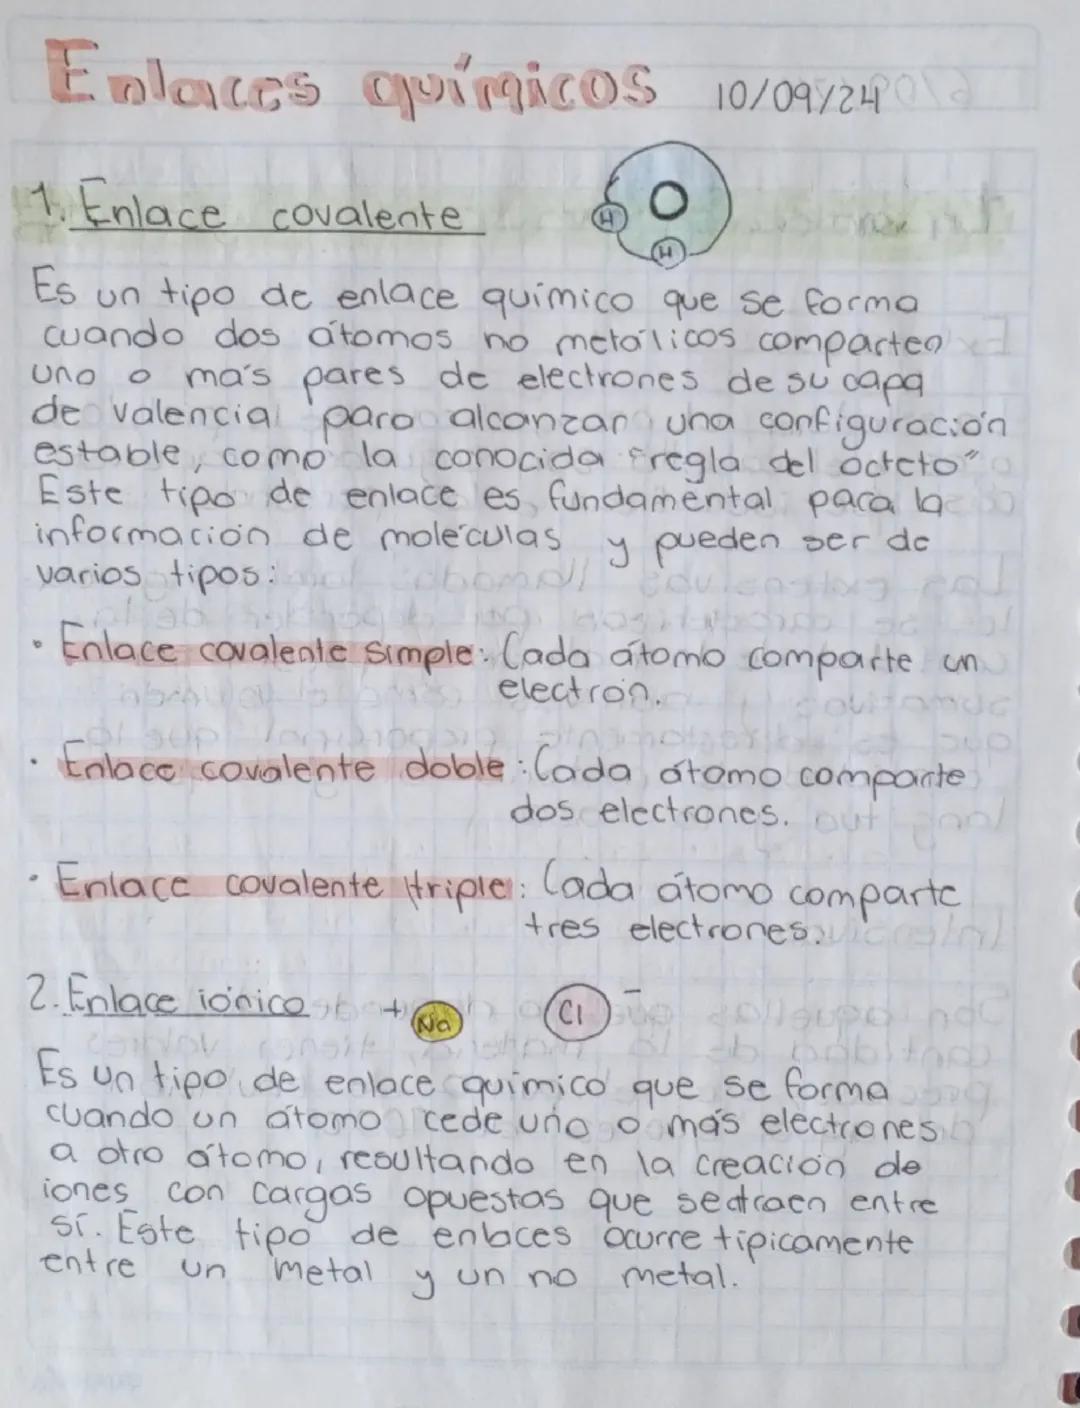 Enlaces químicos 10/09/24
1. Enlace covalente
O
H
H
Es un tipo de enlace químico que se forma
cuando dos átomos no metálicos comparten
uno o más pares de electrones de su capa
de valencia para alcanzar una configuración
estable, como la conocida "regla del octeto"
Este tipo de enlace es fundamental para la
información de moléculas y pueden ser de
varios tipos:
• Enlace covalente simple: Cada átomo comparte un
electrón.
• Enlace covalente doble: Cada átomo comparte
dos electrones.
• Enlace covalente triple: Cada átomo comparte
tres electrones.
2. Enlace iónico + Na Cl -
Es un tipo de enlace químico que se forma
cuando un átomo cede uno o más electrones
a otro átomo, resultando en la creación de
iones con cargas opuestas que se atraen entre
sí. Este tipo de enlaces ocurre tipicamente
entre un metal y un no metal.